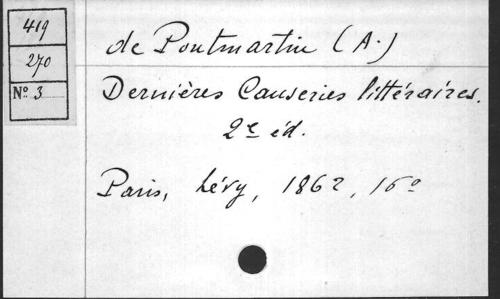 419
270
Nº 3
de Pontmartin (A.)
Dernières Causeries littéraires.
2e éd.
Paris, Lévy, 1862, 16º